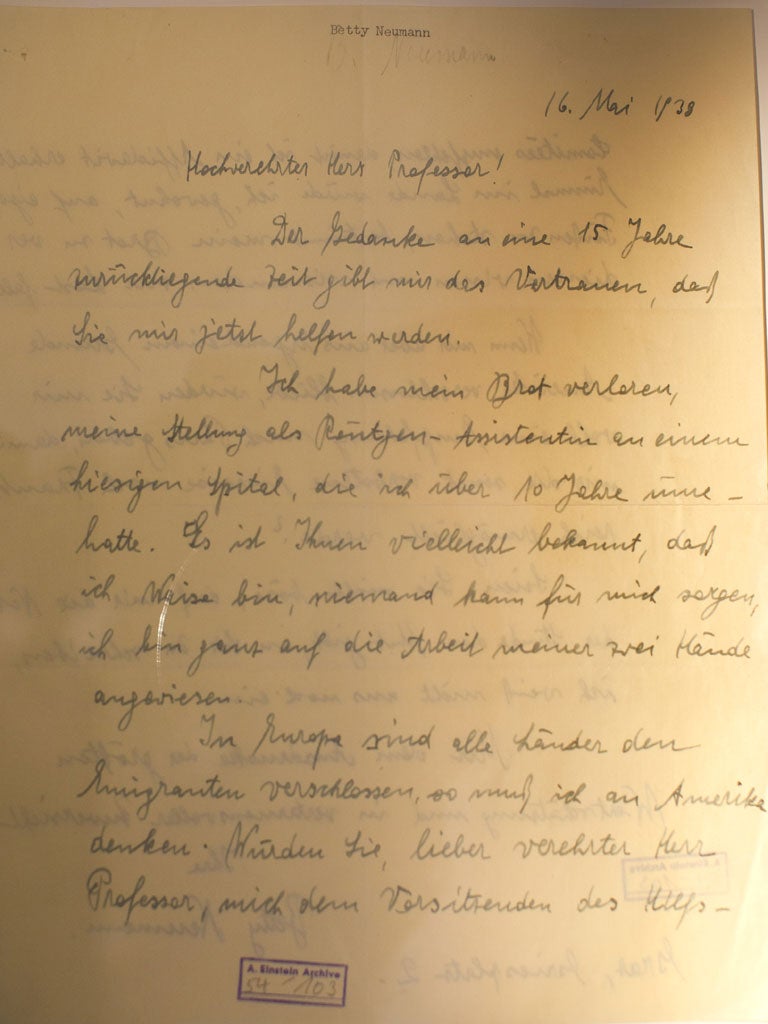 Betty Neumann
B. Neumann
16. Mai 1938
Hochverehrter Herr Professor!
Der Gedanke an eine 15 Jahre
zurückliegende Zeit gibt mir das Vertrauen, daß
Sie mir jetzt helfen werden.
Ich habe mein Brot verloren,
meine Stellung als Röntgen-Assistentin an einem
hiesigen Spital, die ich über 10 Jahre inne-
hatte. Es ist Ihnen vielleicht bekannt, daß
ich Waise bin, niemand kann für mich sorgen,
ich bin ganz auf die Arbeit meiner zwei Hände
angewiesen.
In Europa sind alle Länder den
Emigranten verschlossen, so muß ich an Amerika
denken. Würden Sie, lieber verehrter Herr
Professor, mich dem Vorsitzenden des Hilfs-
A. Einstein Archive
54-103